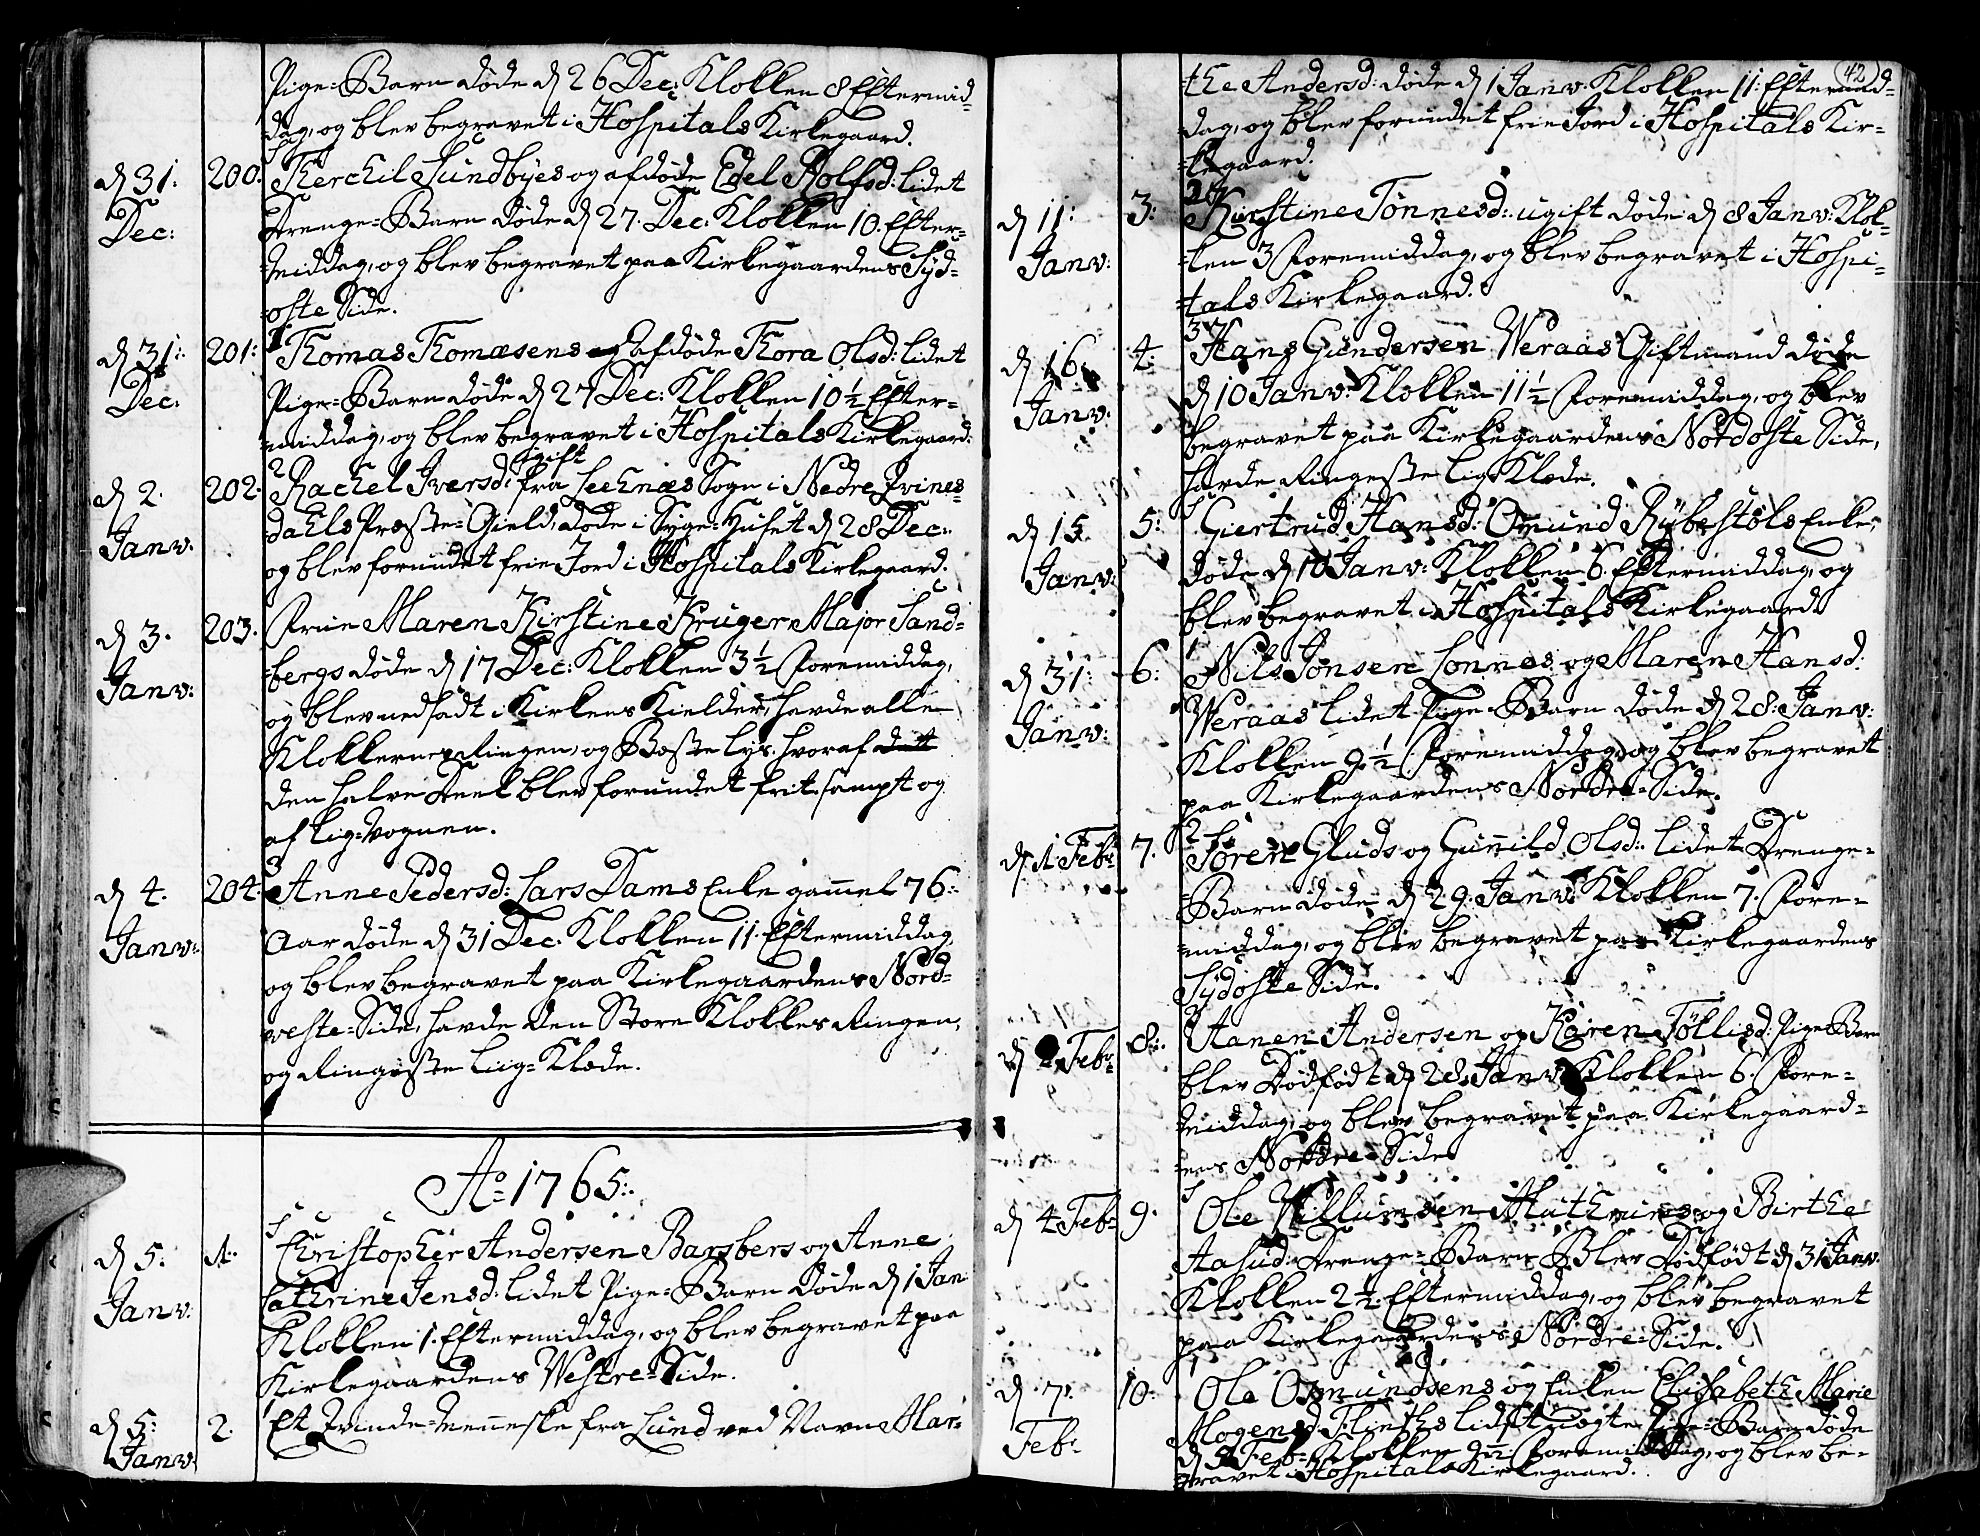 Pige-Barn døde d 26 Dec: Klokken 8 Eftermid-
dag, og blev begravet i Hospitals Kirkegaard.
d 31: Dec: 200. Terchil Sundbyes og afdøde Edel Rolfsd: lidet
Drenge-Barn døde d 27. Dec: Klokken 10. Efter-
middag, og blev begravet paa Kirkegaardens Syd-
oste Side.
d 31: Dec: 201: Thomas Thomæsens og afdøde Thora Olsd: lidet
Pige-Barn døde d 27 Dec: Klokken 10 ½ Efter-
middag, og blev begravet i Hospitals Kirkegaard.
2
ugift
d 2. Janv: 202. Rachel Iversd: fra Sogn i Nedre Qvines-
dahls Præste-Gield, døde i Syge-Huset d 28 Dec:
og blev forundet frie Jord i Hospitals Kirkegaard.
d 3. Janv: 203. Frue Maren Kirstine Kruger Major Sand-
bergs døde d 17 Dec: Klokken 3 ½ Foremiddag,
og blev nedsadt i Kirkens Kielder, havde alle
Klokkernes Ringen, og Beste lys. hvoraf dett
den halve Deel blev forundet frit, sampt og
af Lig-Vognen.
3
d 4. Janv: 204. Anne Pedersd: Lars Dams Enke gammel 76:
Aar døde d 31 Dec. Klokken 11. Eftermiddag
og blev begravet paa Kirkegaardens Nord-
veste-Side, havde den Store Klokkes Ringen,
og Ringeste Liig-Klæde.
Ao 1765:
d 5: Janv: 1. Christopher Andersen Barsbers og Anne
Cathrine Jensd: lidet Pige-Barn døde d 1 Jan:
Klokken 1. Eftermiddag, og blev begravet paa
Kirkegaardens Vestre-Side.
d 5: Janv: 2. Et Qvinde-Menneske fra Lund ved Navn Mar-
42
the Andersd: døde d 1 Janv: Klokken 11: Eftermid-
dag, og blev forundet frie Jord i Hospitals Kir-
kegaard.
d 11: Janv: 3: Kirstine Tønnesd: ugift døde d 8 Janv: Klok-
ken 3 Foremiddag, og blev begravet i Hospi-
tals Kirkegaard.
d 16. Janv: 4: Hans Gundersen Weraas Giftmand døde
d 10 Janv: Klokken 11 ½ Foremiddag, og blev
begravet paa Kirkegaardens Nordoste Side,
havde Ringeste Lig-Klæde.
d 15. Janv: 5: Giertrud Hansd: Omund Rybestøls Enke,
døde d 10 Janv: Klokken 6. Eftermiddag, og
blev begravet i Hospitals Kirkegaard
1
d 31: Janv: 6: Nils Jonsen Lonnes og Maren Hansd:
Weraas lidet Pige-Barn døde d 28: Janv:
Klokken 9 ½ Foremiddag, og blev begravet
paa Kirkegaardens Nordre-Side.
2
d 1 Febr: 7. Søren Gluds og Gunnild Olsd: lidet Drenge-
Barn døde d 29. Janv: Klokken 7. Fore-
middag, og blev begravet paa Kirkegaardens
Sydoste Side.
d 2 Febr: 8: Aanen Andersen og Karen Tøllisd: Pige Barn
blev Dødfødt d 28. Janv: Klokken 6. Fore-
middag, og blev begravet paa Kirkegaard-
ens Nordre-Side
d 4 Febr: 9. Ole Villumsen og Birthe
Aasud: Drenge-Barn Blev Dødfødt d 31 Janv:
Klokken 2 ½ Eftermiddag, og blev begravet
paa Kirkegaardens Nordre-Side.
1
d 7: Febr: 10: Ola Osmundsens og Enken Elisabeth Marie
Mogensd: Flinths lidet ægte Pige-Barn døde
d 5 Febr: Klokken 9 ½ Foremiddag, og blev be-
gravet i Hospitals Kirkegaard.